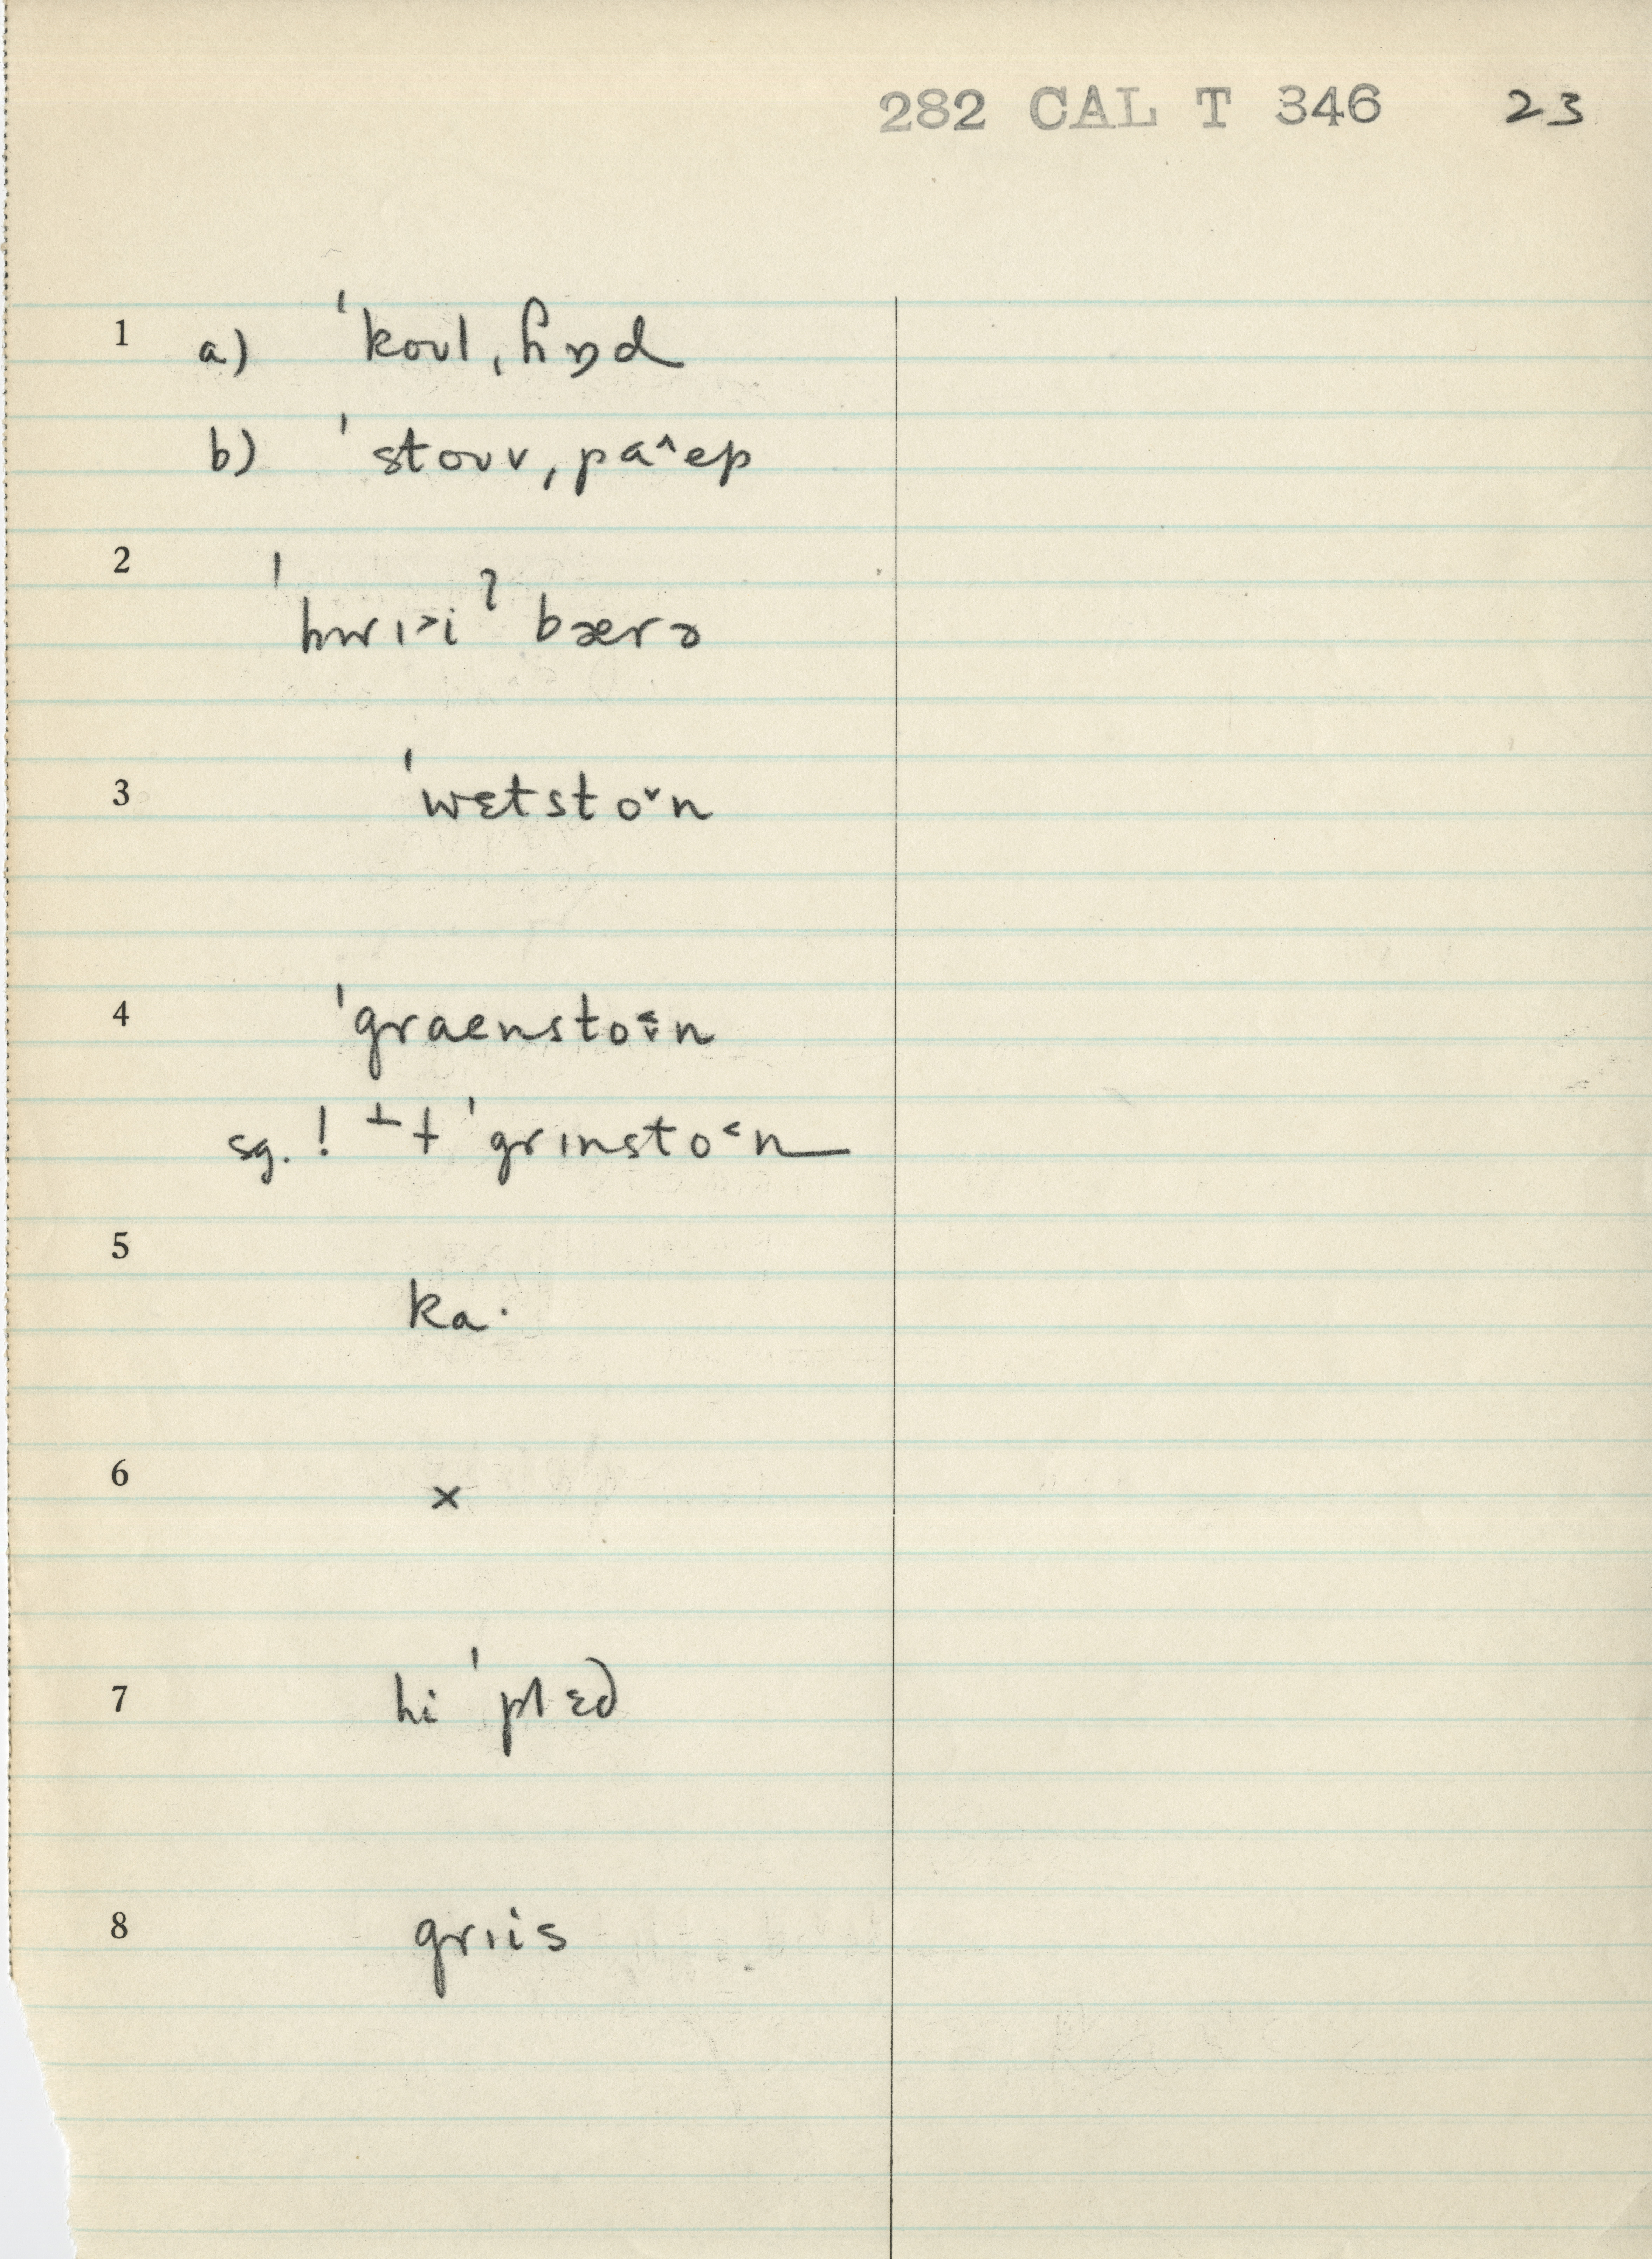 282 CAL T 346 23
1 a) ˈkoʊl ˌɦɒd
b) ˈstoʊv ˌpa˄ep
2 ˈhwɪ˃iˀ bærə
3 ˈwɛtsto˅n
4 ˈgraensto˂˅n
sg. ! ⊥ † ˈgrɪnsto˂n
5 ka·
6 x
7 hi ˈplɛd
8 grɪis